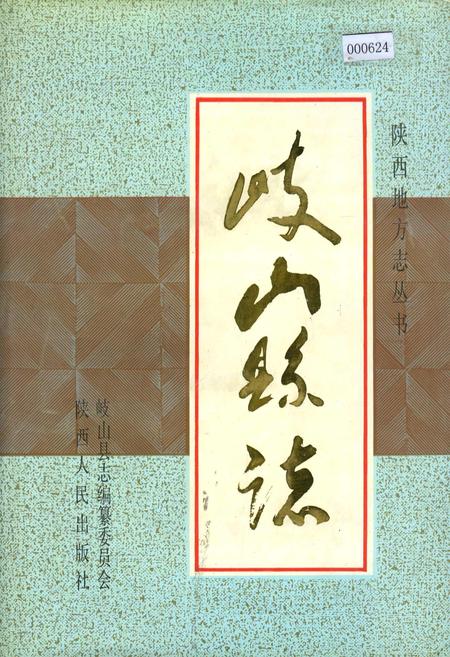 000624
陕西地方志丛书
岐山縣誌
岐山县志编纂委员会
陕西人民出版社